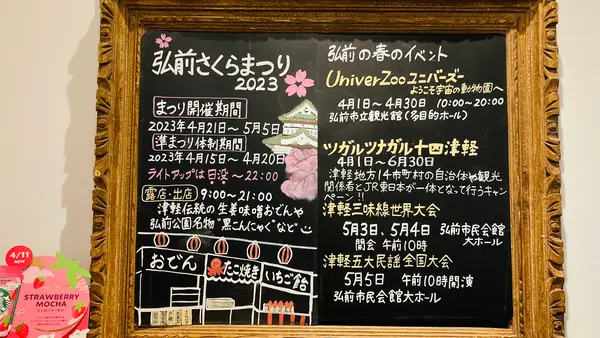 弘前さくらまつり
2023
まつり開催期間
2023年4月21日～5月5日
準まつり体制期間
2023年4月15日～4月20日
ライトアップは日没～22:00
露店・出店 9:00～21:00
津軽伝統の生姜味噌おでんや
弘前公園名物"黒こんにゃく"など
おでん
たこ焼き
いちご飴
弘前の春のイベント
UniverZoo ユニバーズー
ようこそ宇宙の動物園へ
4月1日～4月30日 10:00～20:00
弘前市立観光館(多目的ホール)
ツガルツナガル十四津軽
4月1日～6月30日
津軽地方14市町村の自治体や観光
関係者とJR東日本が一体となって行うキャン
ペーン!!
津軽三味線世界大会
5月3日、5月4日 弘前市民会館
開会 午前10時 大ホール
津軽五大民謡全国大会
5月5日 午前10時開演
弘前市民会館大ホール
4/11
NEW
STRAWBERRY
MOCHA